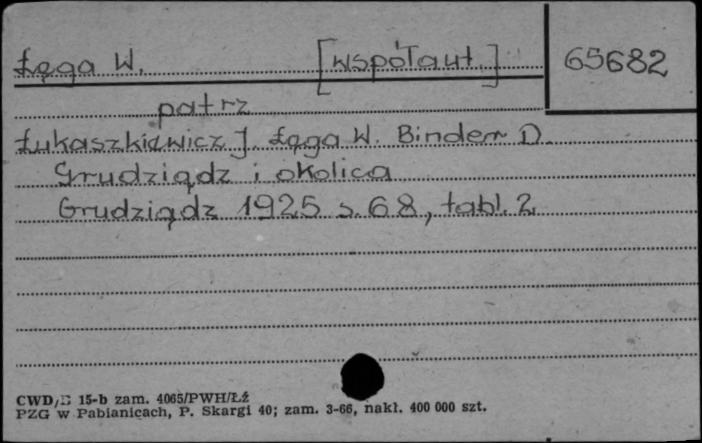 Łęga W. [współaut.] 65682
patrz
Łukaszkiewicz J. Łęga W. Binder D.
Grudziądz i okolica
Grudziądz 1925 s. 68, tabl. 2
CWD/ 15-b zam. 4065/PWH/Łź
PZG w Pabianicach, P. Skargi 40; zam. 3-66, nakł. 400 000 szt.